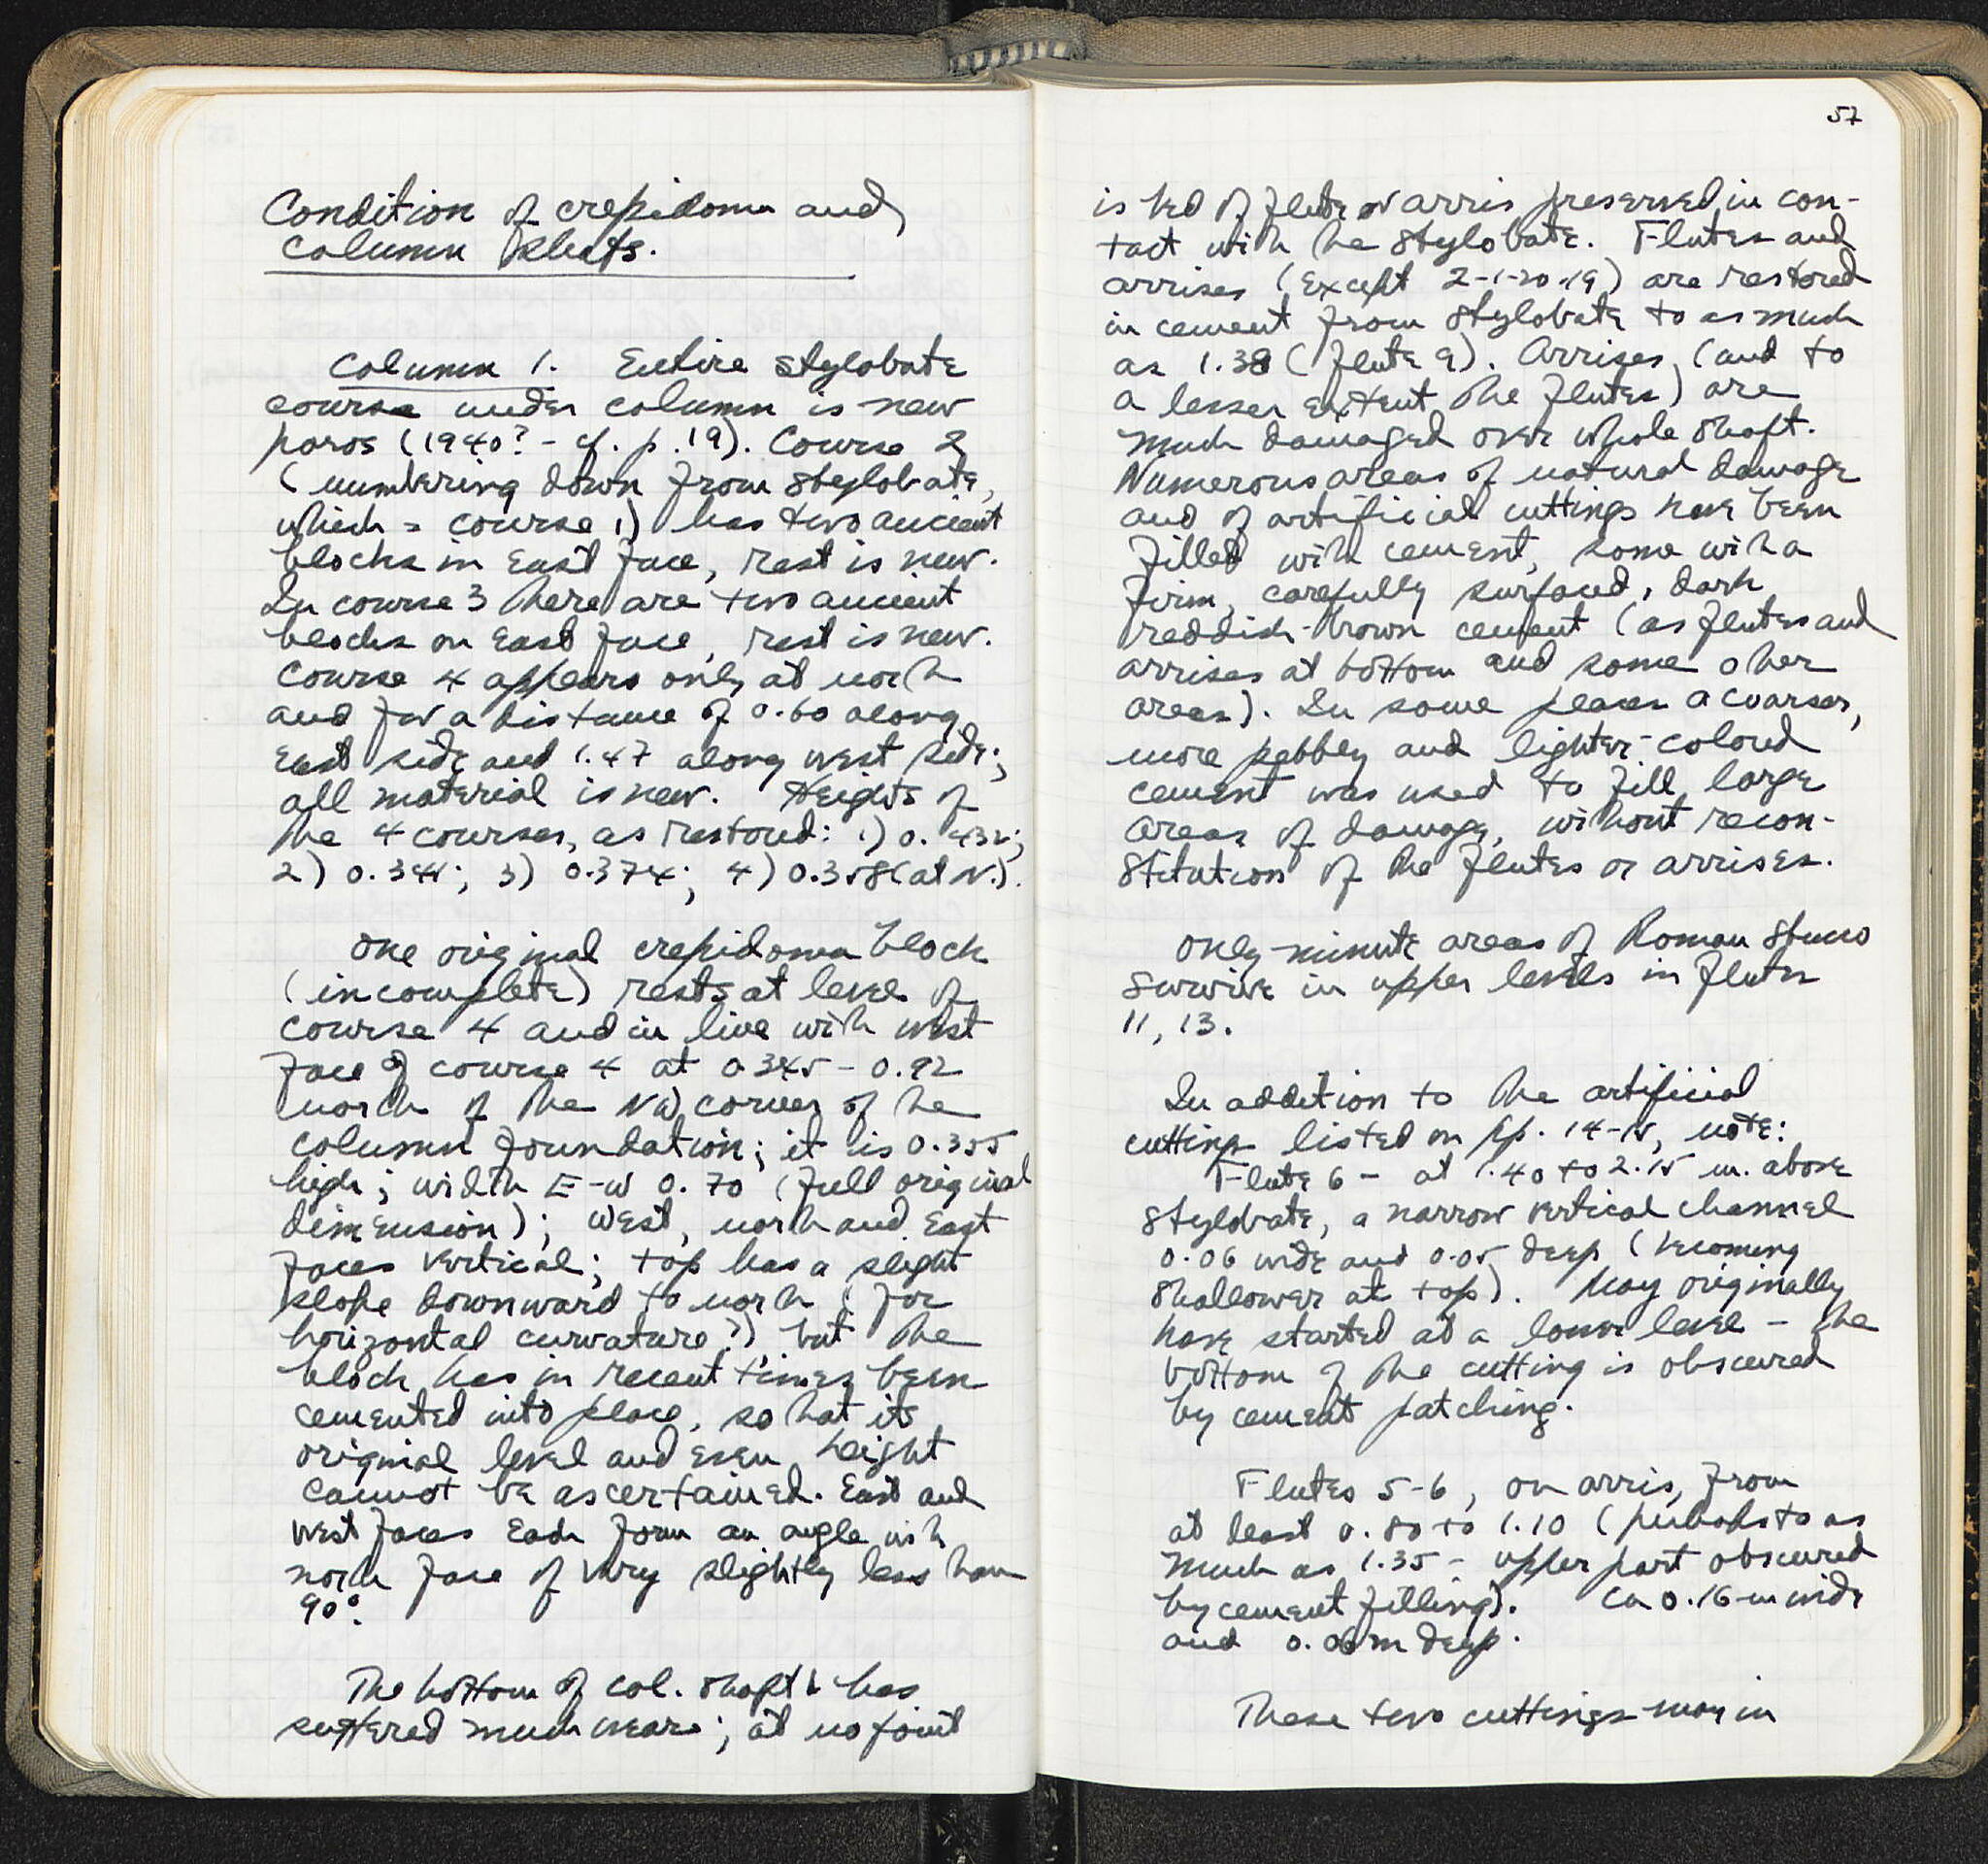 Condition of crepidoma and
column shafts.
Column 1. Entire stylobate
course under column is new
poros (1940? - cf. p. 19). Course 2
(numbering down from stylobate,
which = course 1) has two ancient
blocks in East face, rest is new.
In course 3 there are two ancient
blocks on East face, rest is new.
Course 4 appears only at north
and for a distance of 0.60 along
East side and 1.47 along west side;
all material is new. Heights of
the 4 courses, as restored: 1) 0.432;
2) 3) 0.374; 4) 0.358 (at N.).
One original crepidoma block
(incomplete) rests at level of
course 4 and in line with west
face of course 4 at 0.345 - 0.92
north of the NW corner of the
column foundation; it is 0.355
high; width E-W 0.70 (full original
dimension); West, north and East
faces vertical; top has a slight
slope downward to north (for
horizontal curvature?) but the
block has in recent times been
cemented into place, so that its
original level and even height
cannot be ascertained. East and
West faces each form an angle with
north face of very slightly less than
90°.
The bottom of col. shaft 1 has
suffered much wear; at no point
57
is bed of flute or arris preserved in con-
tact with the stylobate. Flutes and
arrises (except 2-1-20-19) are restored
in cement from stylobate to as much
as 1.38 (flute 9). Arrises, (and to
a lesser extent the flutes) are
much damaged over whole shaft.
Numerous areas of natural damage
and of artificial cuttings have been
filled with cement, some with a
firm, carefully surfaced, dark
reddish-brown cement (as flutes and
arrises at bottom and some other
areas). In some places a coarser,
more pebbly and lighter-colored
cement was used to fill large
areas of damage, without recon-
stitution of the flutes or arrises.
Only minute areas of Roman stucco
survive in upper levels in flutes
11, 13.
In addition to the artificial
cuttings listed on pp. 14-15, note:
Flute 6 - at 1.40 to 2.15 m. above
stylobate, a narrow vertical channel
0.06 wide and 0.05 deep (becoming
shallower at top). May originally
have started at a lower level - the
bottom of the cutting is obscured
by cement patching.
Flutes 5-6, on arris, from
at least 0.80 to 1.10 (perhaps to as
much as 1.35 - upper part obscured
by cement filling). Ca 0.16 m wide
and 0.06 m deep.
These two cuttings may in